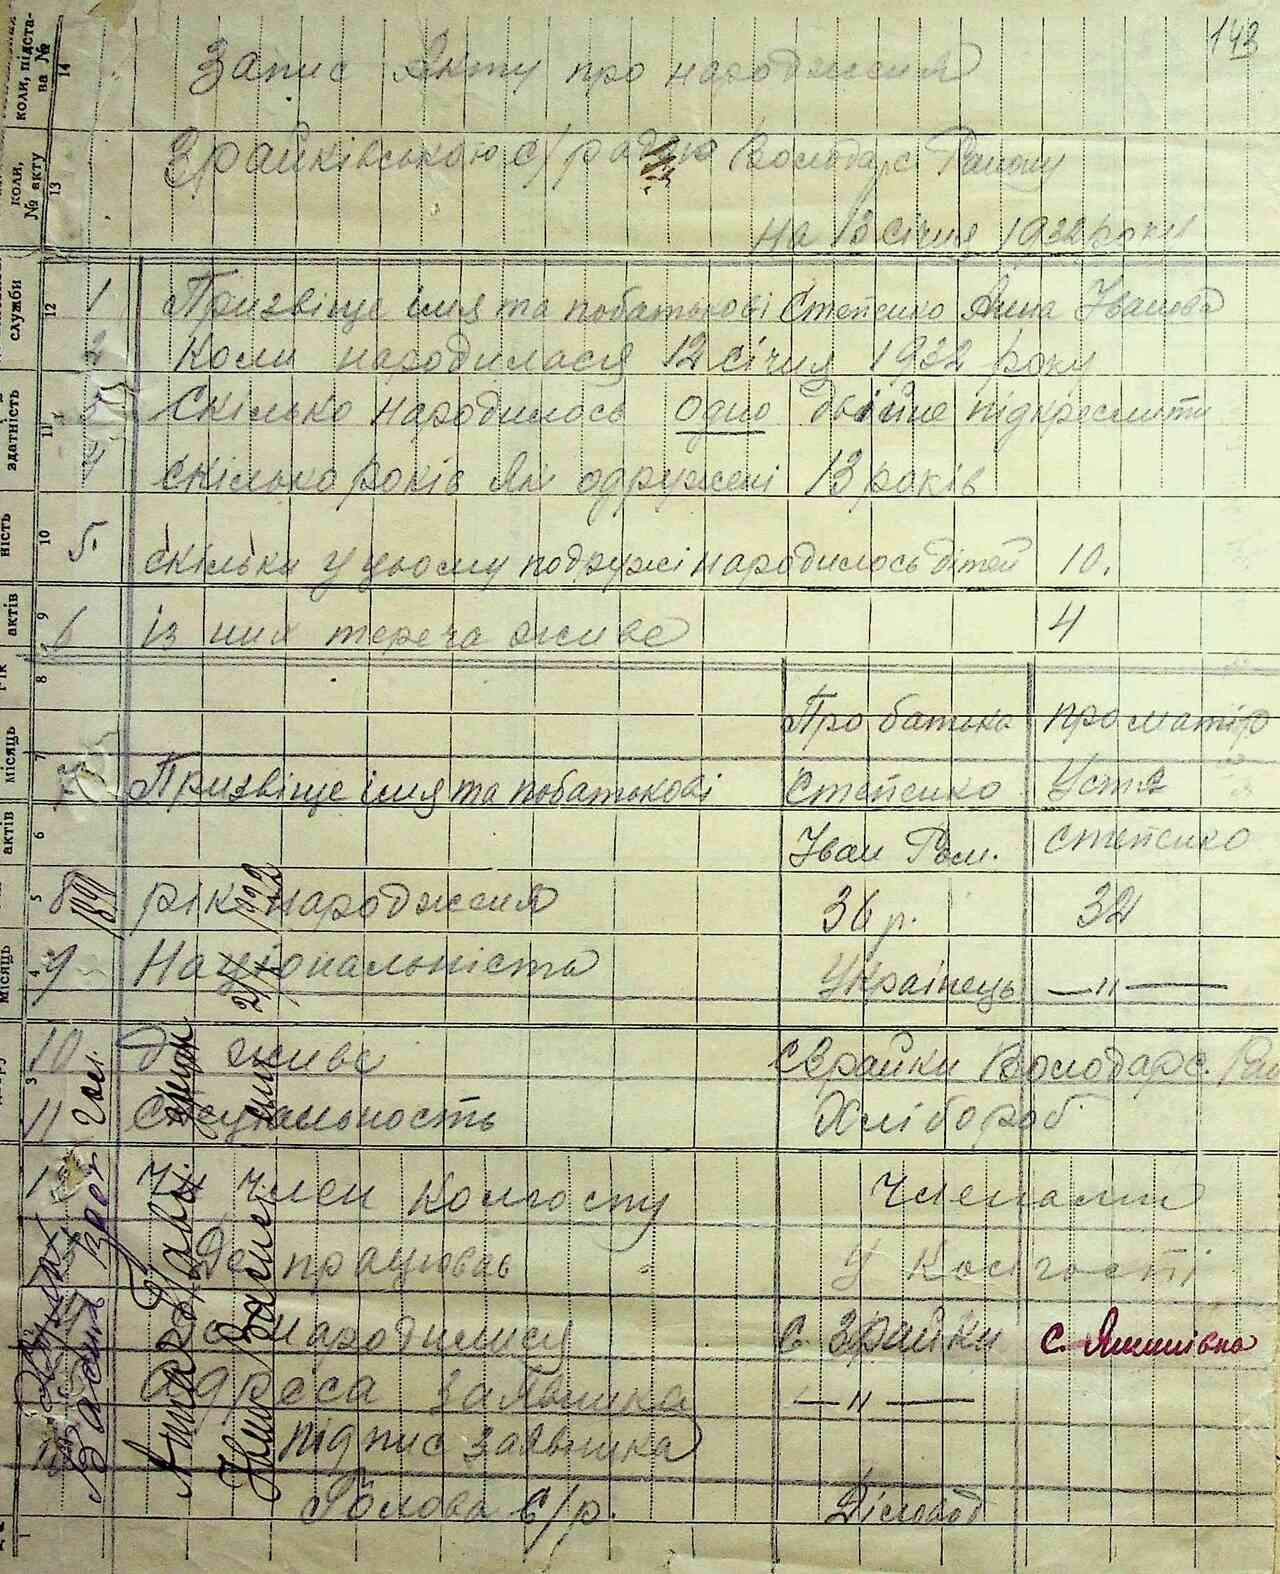 143
Запис Акту про народження
Зрайківською с/радою Володарс. Району
На 13 січня 1932 року
1 Призвіще імя та побатькові Степенко Анна Іванова
2 Коли народилася 12 січня 1932 року
3 Скілько народилось одно двійне підкреслити
4 скілько років як одружені 13 років
5. скільки у цьому подружі народилось дітей 10.
6 із них тереча живе 4
Про батька про матір
7 Призвіще імя та побатькові Степенко Устя
Іван Ром. Степенко
8 рік народження 36 р. 32
9 Національність Українець —"—
10 де живе с Зрайки Володарс. Рай
11 Хлібороб
Чи член колгоспу Членами
Де працюваь У Колгоспі
Де народилися с. Зрайки с. Янишівка
Адреса заявника —"—
підпис заявника
Голова с/р. Діловод
коли, підста-
ва №
14
коли,
№ акту
13
служби
12
здатність
11
ність
10
актів
9
рік
8
місяць
7
актів
6
5
місяць
4
3
1